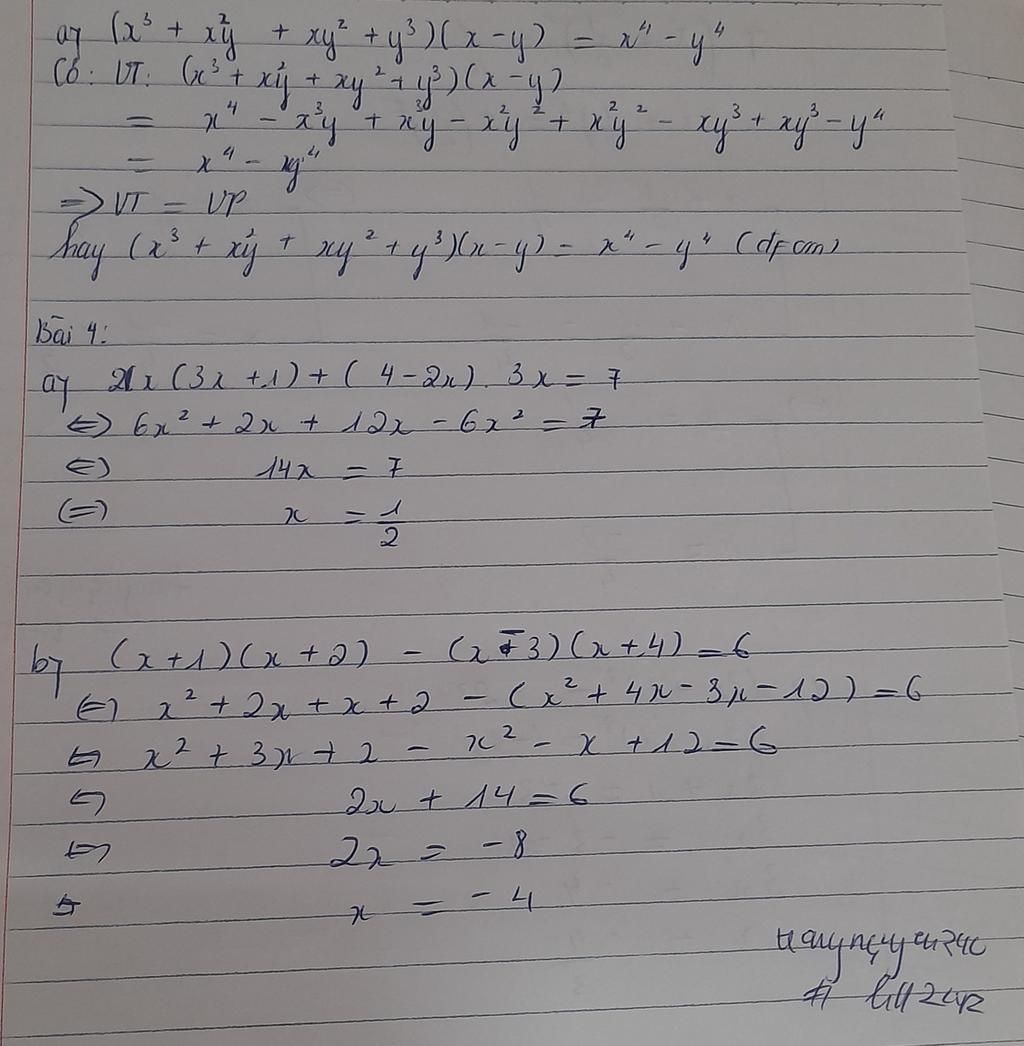 a) (x³ + x²y + xy² + y³)(x - y) = x⁴ - y⁴
Có: VT: (x³ + x²y + xy² + y³)(x - y)
= x⁴ - x³y + x³y - x²y² + x²y² - xy³ + xy³ - y⁴
= x⁴ - y⁴
=> VT = VP
hay (x³ + x²y + xy² + y³)(x - y) = x⁴ - y⁴ (đfcm)
Bài 4:
a) 2x(3x + 1) + (4 - 2x). 3x = 7
⇔ 6x² + 2x + 12x - 6x² = 7
⇔ 14x = 7
⇔ x = 1/2
b) (x + 1)(x + 2) - (x - 3)(x + 4) = 6
⇔ x² + 2x + x + 2 - (x² + 4x - 3x - 12) = 6
⇔ x² + 3x + 2 - x² - x + 12 = 6
⇔ 2x + 14 = 6
⇔ 2x = -8
⇔ x = -4